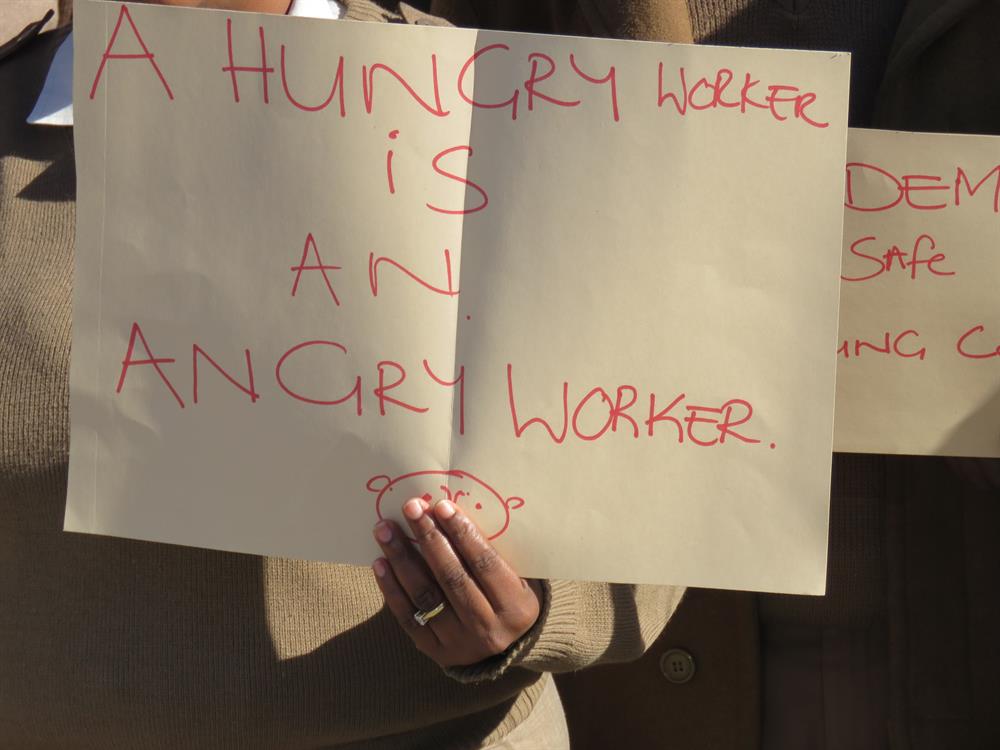 A HUNGRY WORKER
iS
AN
ANGRY WORKER.
DEM
SAfe